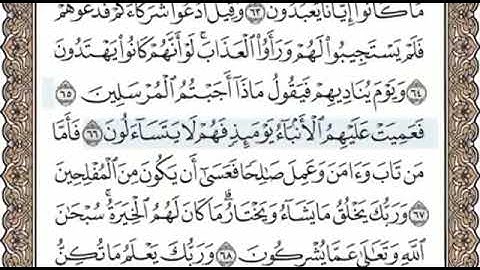 مَا كَانُوٓا۟ إِيَّانَا يَعْبُدُونَ ٦٣ وَقِيلَ ٱدْعُوا۟ شُرَكَآءَكُمْ فَدَعَوْهُمْ
فَلَمْ يَسْتَجِيبُوا۟ لَهُمْ وَرَأَوُا۟ ٱلْعَذَابَ ۚ لَوْ أَنَّهُمْ كَانُوا۟ يَهْتَدُونَ
٦٤ وَيَوْمَ يُنَادِيهِمْ فَيَقُولُ مَاذَآ أَجَبْتُمُ ٱلْمُرْسَلِينَ ٦٥
فَعَمِيَتْ عَلَيْهِمُ ٱلْأَنۢبَآءُ يَوْمَئِذٍ فَهُمْ لَا يَتَسَآءَلُونَ ٦٦ فَأَمَّا
مَن تَابَ وَءَامَنَ وَعَمِلَ صَٰلِحًا فَعَسَىٰٓ أَن يَكُونَ مِنَ ٱلْمُفْلِحِينَ
٦٧ وَرَبُّكَ يَخْلُقُ مَا يَشَآءُ وَيَخْتَارُ ۗ مَا كَانَ لَهُمُ ٱلْخِيَرَةُ ۚ سُبْحَٰنَ
ٱللَّهِ وَتَعَٰلَىٰ عَمَّا يُشْرِكُونَ ٦٨ وَرَبُّكَ يَعْلَمُ مَا تُكِنُّ